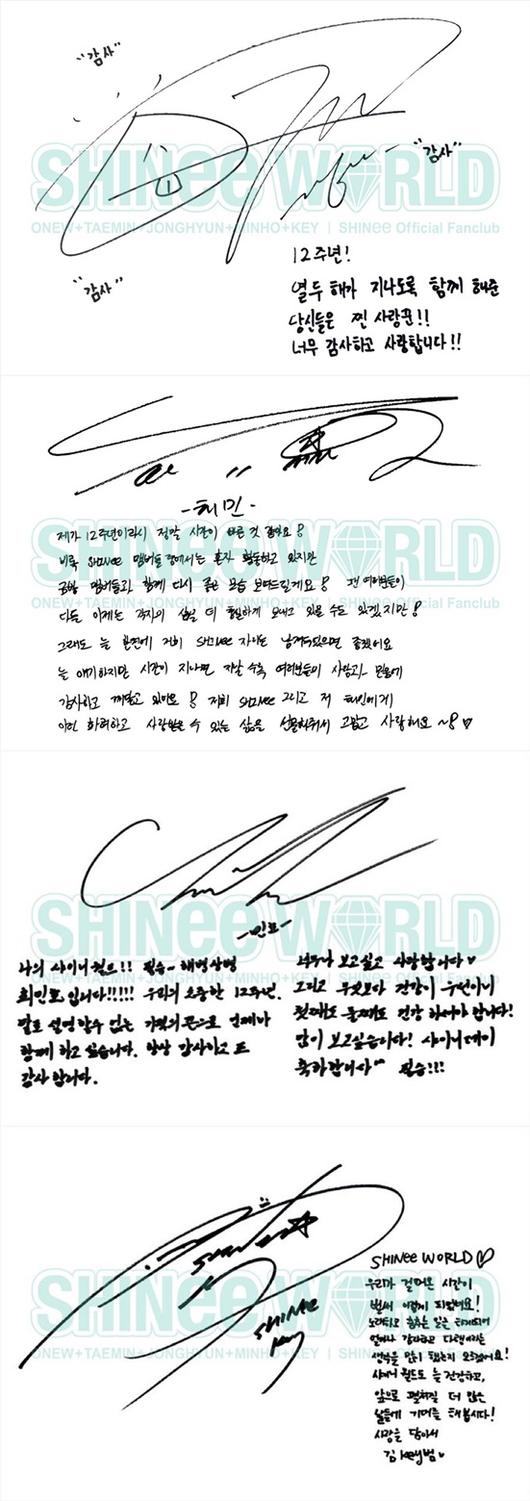 "감사"
"감사"
"감사"
SHINee WORLD
ONEW+TAEMIN+JONGHYUN+MINHO+KEY | SHINee Official Fanclub
12주년!
열두 해가 지나도록 함께 해준
당신들은 찐 사랑꾼!!
너무 감사하고 사랑합니다!!
SHINee WORLD
ONEW+TAEMIN+JONGHYUN+MINHO+KEY | SHINee Official Fanclub
-태민-
제가 12주년이라니 정말 시간이 빠른 것 같아요!
비록 SHINee 멤버들 중에서는 혼자 활동하고 있지만
금방 멤버들과 함께 다시 좋은 모습 보여드릴게요! 팬 여러분들이
다들 이제는 각자의 삶을 더 충실하게 보내고 있을 수도 있겠지만!
그래도 늘 한편에 저희 SHINee 자리는 남겨두셨으면 좋겠어요
늘 얘기하지만 시간이 지나면 지날수록 여러분들의 사랑과
감사하고 깨닫고 있어요! 저희 SHINee 그리고 저 태민에게
이런 화려하고 사랑받을 수 있는 삶을 선물해줘서 고맙고 사랑해요 ~!♡
SHINee WORLD
ONEW+TAEMIN+JONGHYUN+MINHO+KEY | SHINee Official Fanclub
-민호-
나의 샤이니 월드!! 필승- 해병상병
최민호 입니다!!!!! 우리의 소중한 12주년.
말로 설명할수 없는 기적의 끈으로 언제나
함께 하고 싶습니다. 항상 감사하고 또
감사 합니다.
너무나 보고싶고 사랑합니다♥
그리고 무엇보다 건강이 우선이니
첫째도 둘째도 건강 하셔야 합니다!
많이 보고싶습니다! 샤이니데이
축하합니다^^ 필승!!!
SHINee WORLD
ONEW+TAEMIN+JONGHYUN+MINHO+KEY | SHINee Official Fanclub
SHINee
Key
SHINee WORLD♡
우리가 걸어온 시간이
벌써 이렇게 되었네요!
노래하고 춤추는 일을 하게되어
얼마나 감사하고 다행이라는
생각을 많이 했는지 모르겠어요!
샤이니 월드도 늘 건강하고,
앞으로 펼쳐질 더 많은
날들에 기대를 해 봅시다!
사랑을 담아서
김 key범♥